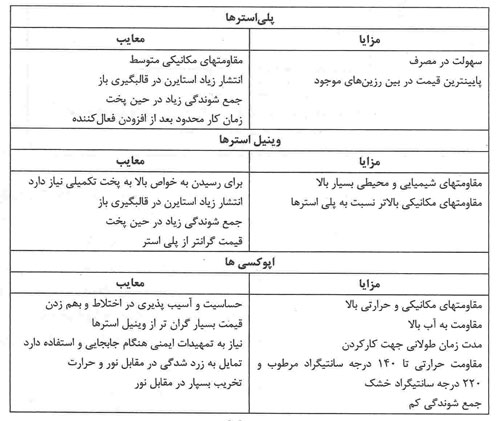 پلی‌استرها
مزایا
معایب
سهولت در مصرف
پایینترین قیمت در بین رزین‌های موجود
مقاومتهای مکانیکی متوسط
انتشار زیاد استایرن در قالبگیری باز
جمع شوندگی زیاد در حین پخت
زمان کار محدود بعد از افزودن فعال‌کننده
وینیل استرها
مزایا
معایب
مقاومتهای شیمیایی و محیطی بسیار بالا
مقاومتهای مکانیکی بالاتر نسبت به پلی استرها
برای رسیدن به خواص بالا به پخت تکمیلی نیاز دارد
انتشار زیاد استایرن در قالبگیری باز
جمع شوندگی زیاد در حین پخت
قیمت گرانتر از پلی استر
اپوکسی ها
مزایا
معایب
مقاومتهای مکانیکی و حرارتی بالا
مقاومت به آب بالا
مدت زمان طولانی جهت کارکردن
مقاومت حرارتی تا ۱۴۰ درجه سانتیگراد مرطوب و
۲۲۰ درجه سانتیگراد خشک
جمع شوندگی کم
حساسیت و آسیب پذیری در اختلاط و بهم زدن
قیمت بسیار گران تر از وینیل استرها
نیاز به تمهیدات ایمنی هنگام جابجایی و استفاده دارد
تمایل به زرد شدگی در مقابل نور و حرارت
تخریب بسپار در مقابل نور